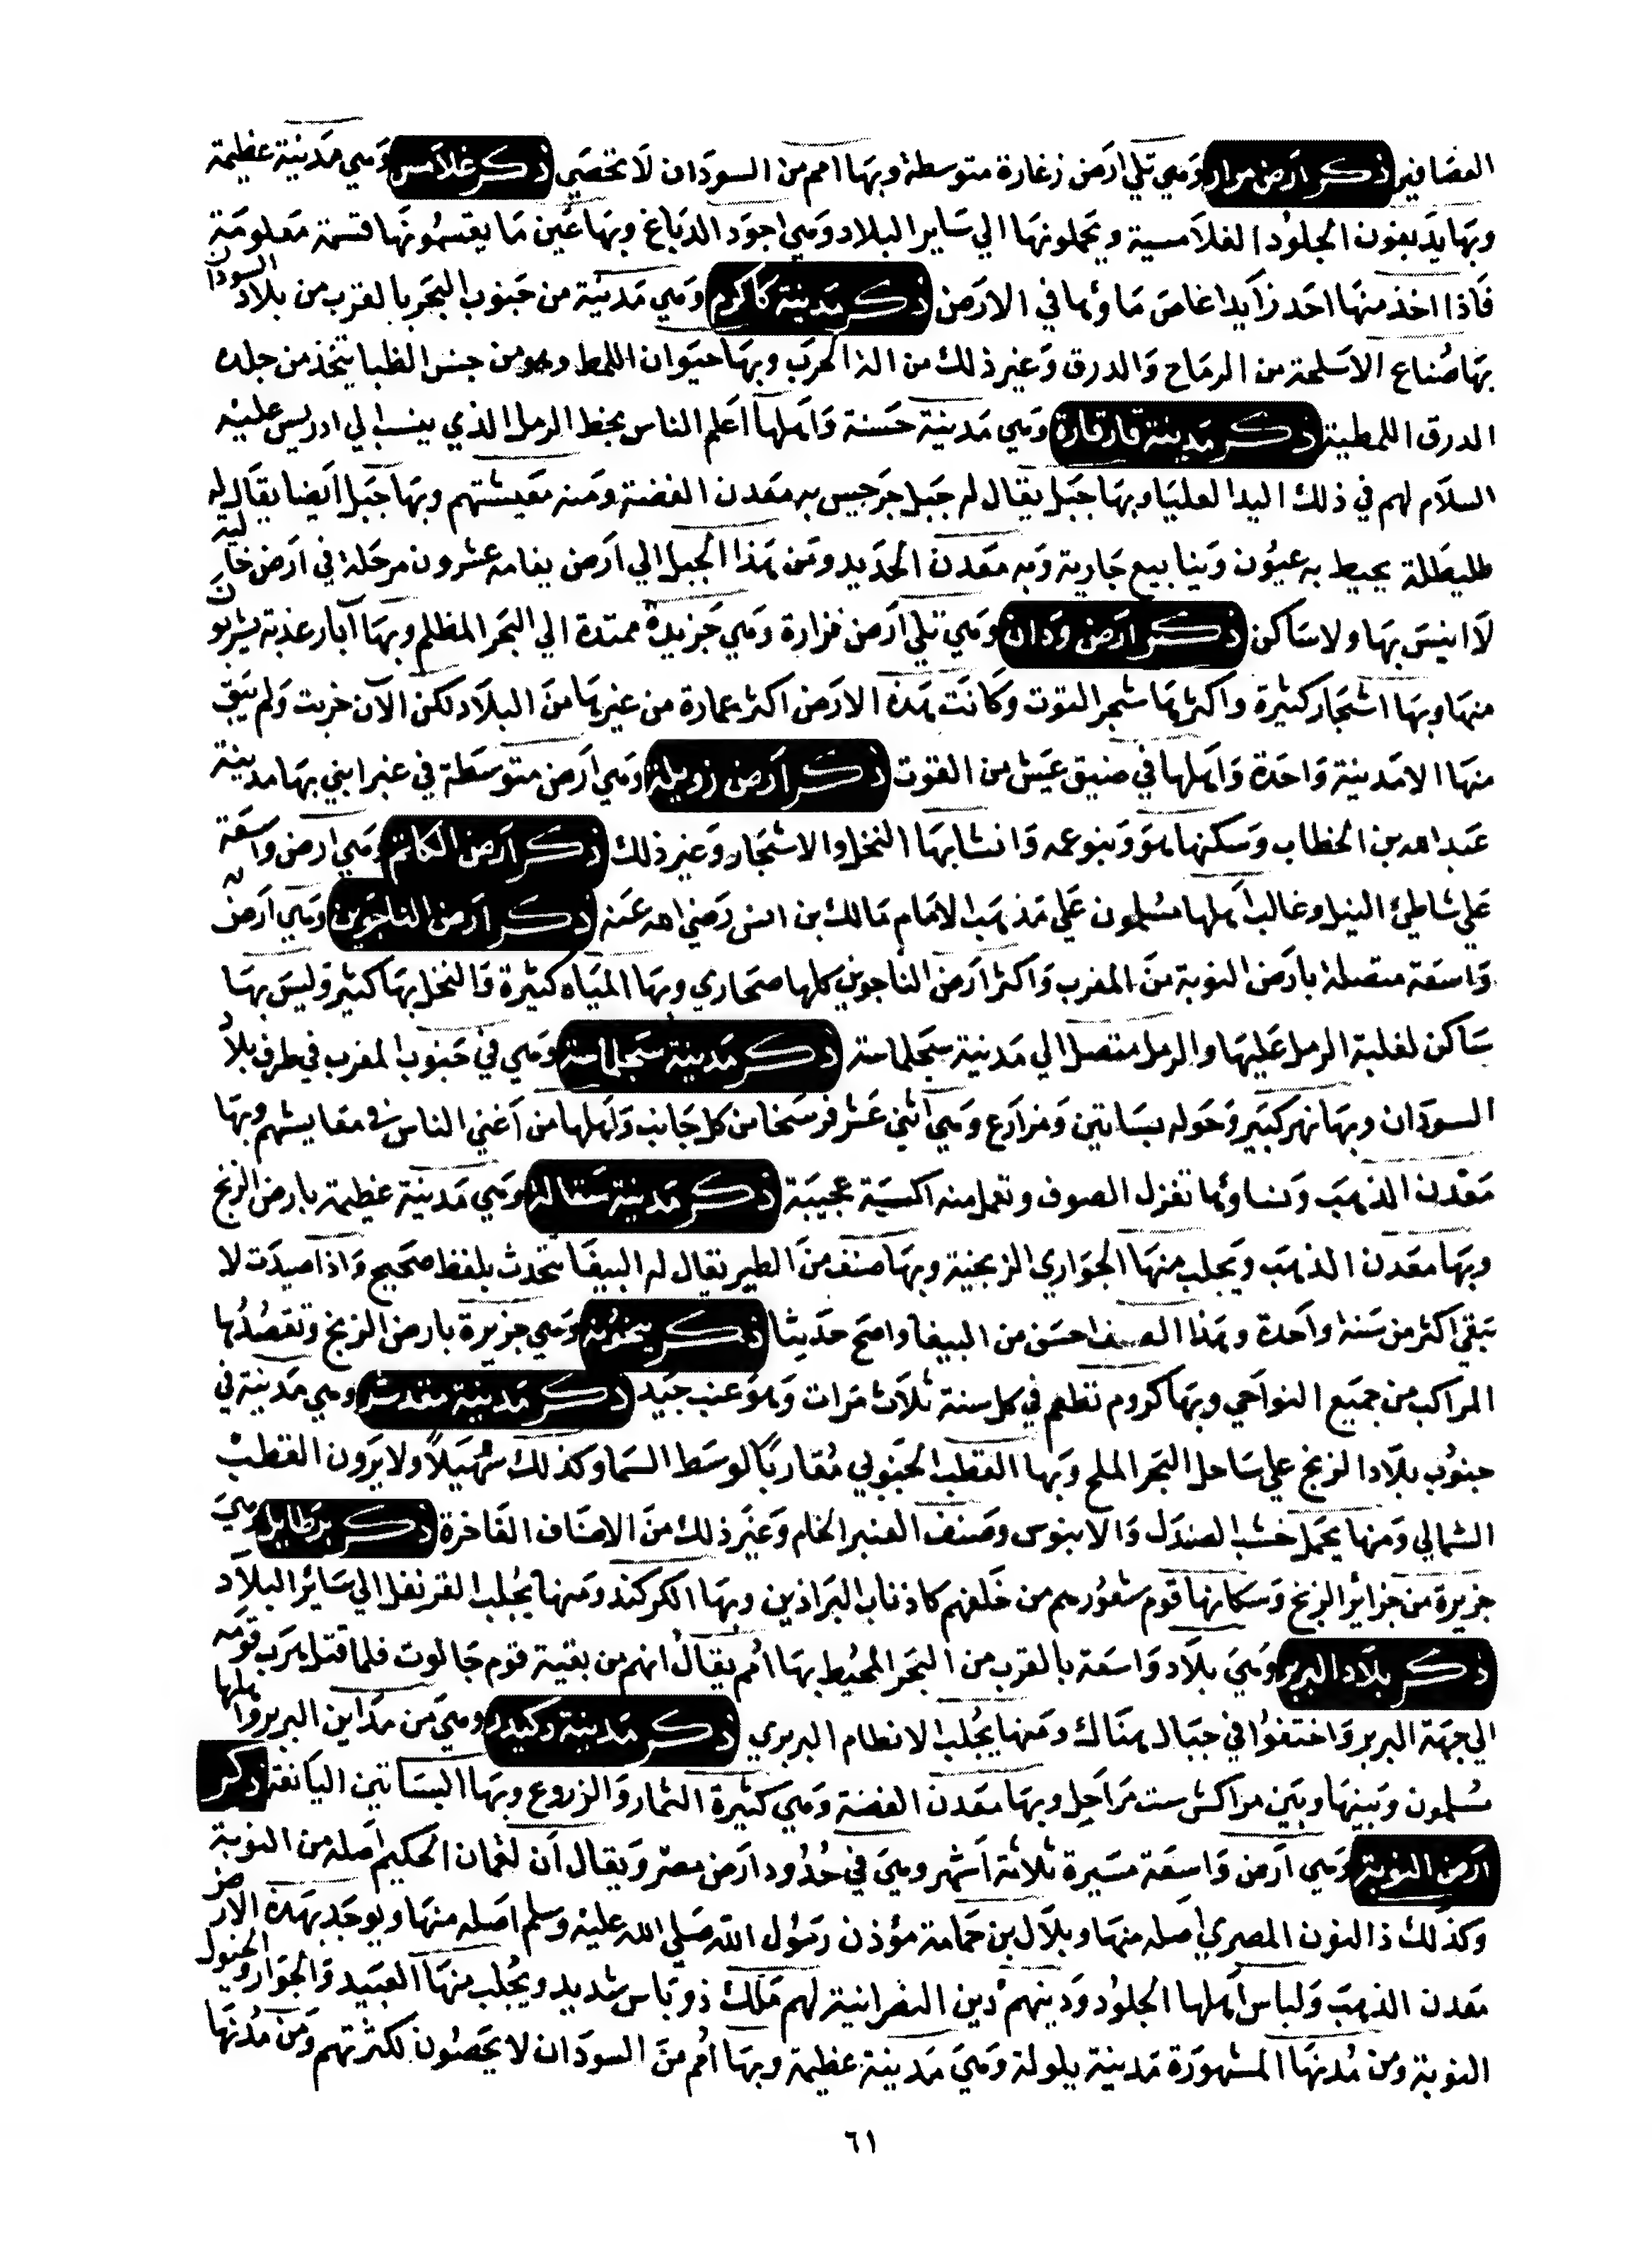 العصافير ذكر ارض مرار وهي تلي ارض زغارة متوسطة وبها امم من السودان لا تحصي ذكر غلامس وهي مدينة عظيمة
وبها يدبغون الجلود الغلامسية ويحملونها الي ساير البلاد وهي اجود الدباغ وبها عين ما يقسمونها قسمة معلومة
فاذا اخذ منها احد زايدا غاص ماؤها في الارض ذكر مدينة كاكرم وهي مدينة من جنوب البحر بالقرب من بلاد السودان
بها صناع الاسلحة من الرماح والدرق وغير ذلك من الة الحرب وبها حيوان اللمط وهو من جنس الظبا يتخذ من جلده
الدرق اللمطية ذكر مدينة قارقارة وهي مدينة حسنة واهلها اعلم الناس بخط الرمل الذي ينسب الي ادريس عليه
السلام لهم في ذلك اليد العليا وبها جبل يقال له جبل جرجيس به معدن الفضة ومنه معيشتهم وبها جبل ايضا يقال له
طليطلة يحيط به عيون وينابيع جارية وبه معدن الحديد ومن هذا الجبل الي ارض يغامه عشرون مرحلة في ارض خالية
لا انيس بها ولا ساكن ذكر ارض ودان وهي تلي ارض فزارة وهي جزيدة ممتدة الي البحر المظلم وبها آبار عذبة يشربون
منها وبها اشجار كثيرة واكثرها شجر التوت وكانت هذه الارض اكثر عمارة من غيرها من البلاد لكن الآن خربت ولم يبق
منها الا مدينة واحدة واهلها في ضيق عيش من القوت ذكر ارض زويلة وهي ارض متوسطة في غبر ابني بها مدينة
عبد الله بن الخطاب وسكنها هو وبنو عمه وانشا بها النخل والاشجار وغير ذلك ذكر ارض الكانم وهي ارض واسعة
علي شاطئ النيل وغالب اهلها مسلمون علي مذهب الامام مالك بن انس رضي الله عنه ذكر ارض التاجوين وهي ارض
واسعة متصلة بارض النوبة من المغرب واكثر ارض التاجوين كلها صحاري وبها المياه كثيرة والنخل بها كثير وليس بها
ساكن لغلبة الرمل عليها والرمل متصل الي مدينة سجلماسة ذكر مدينة سجلماسة وهي في جنوب المغرب في طرف بلاد
السودان وبها نهر كبير وحوله بساتين ومزارع وهي اثني عشر فرسخا من كل جانب واهلها من اغني الناس في معايشهم وبها
معدن الذهب ونساؤها تغزل الصوف وتعمل منه اكسية عجيبة ذكر مدينة سفالة وهي مدينة عظيمة بارض الزنج
وبها معدن الذهب ويجلب منها الجواري الزنجية وبها صنف من الطير يقال له الببغا يتحدث بلفظ صحيح واذا صيدت لا
تبقي اكثر من سنة واحدة وهذا الصنف احسن من الببغا واصح حديثا ذكر وهي جزيرة بارض الزنج وتقصدها
المراكب من جميع النواحي وبها كروم تطعم في كل سنة ثلاث مرات وهو عنب جيد ذكر مدينة مقدشة وهي مدينة في
جنوب بلاد الزنج علي ساحل البحر الملح وبها القطب الجنوبي مقاربا لوسط السما وكذلك سهيلا ولا يرون القطب
الشمالي ومنها يحمل خشب الصندل والابنوس وصنف العنبر الخام وغير ذلك من الاصناف الفاخرة ذكر برطايل وهي
جزيرة من جزائر الزنج وسكانها قوم شعورهم من خلفهم كاذناب البراذين وبها الكركند ومنها يجلب القرنفل الي سائر البلاد
ذكر بلاد البربر وهي بلاد واسعة بالقرب من البحر المحيط بها امم يقال انهم من بقية قوم جالوت فلما قتل هرب قومه
الي جهة البربر واختفوا في جبال هناك ومنها يجلب الانطام البربري ذكر مدينة دكيدر وهي من مداين البربر واهلها
مسلمون وبينها وبين مراكش ست مراحل وبها معدن الفضة وهي كثيرة الثمار والزروع وبها البساتين اليانعة ذكر
ارض النوبة وهي ارض واسعة مسيرة ثلاثة اشهر وهي في حدود ارض مصر ويقال ان لقمان الحكيم اصله من النوبة
وكذلك ذا النون المصري اصله منها وبلال بن حمامة مؤذن رسول الله صلي الله عليه وسلم اصله منها ويوجد بهذه الارض
معدن الذهب ولباس اهلها الجلود ودينهم دين النصرانية لهم ملك ذو باس شديد ويجلب منها العبيد والجوار والخيول
النوبة ومن مدنها المشهورة مدينة بلولة وهي مدينة عظيمة وبها امم من السودان لا يحصون لكثرتهم ومن مدنها
٦١